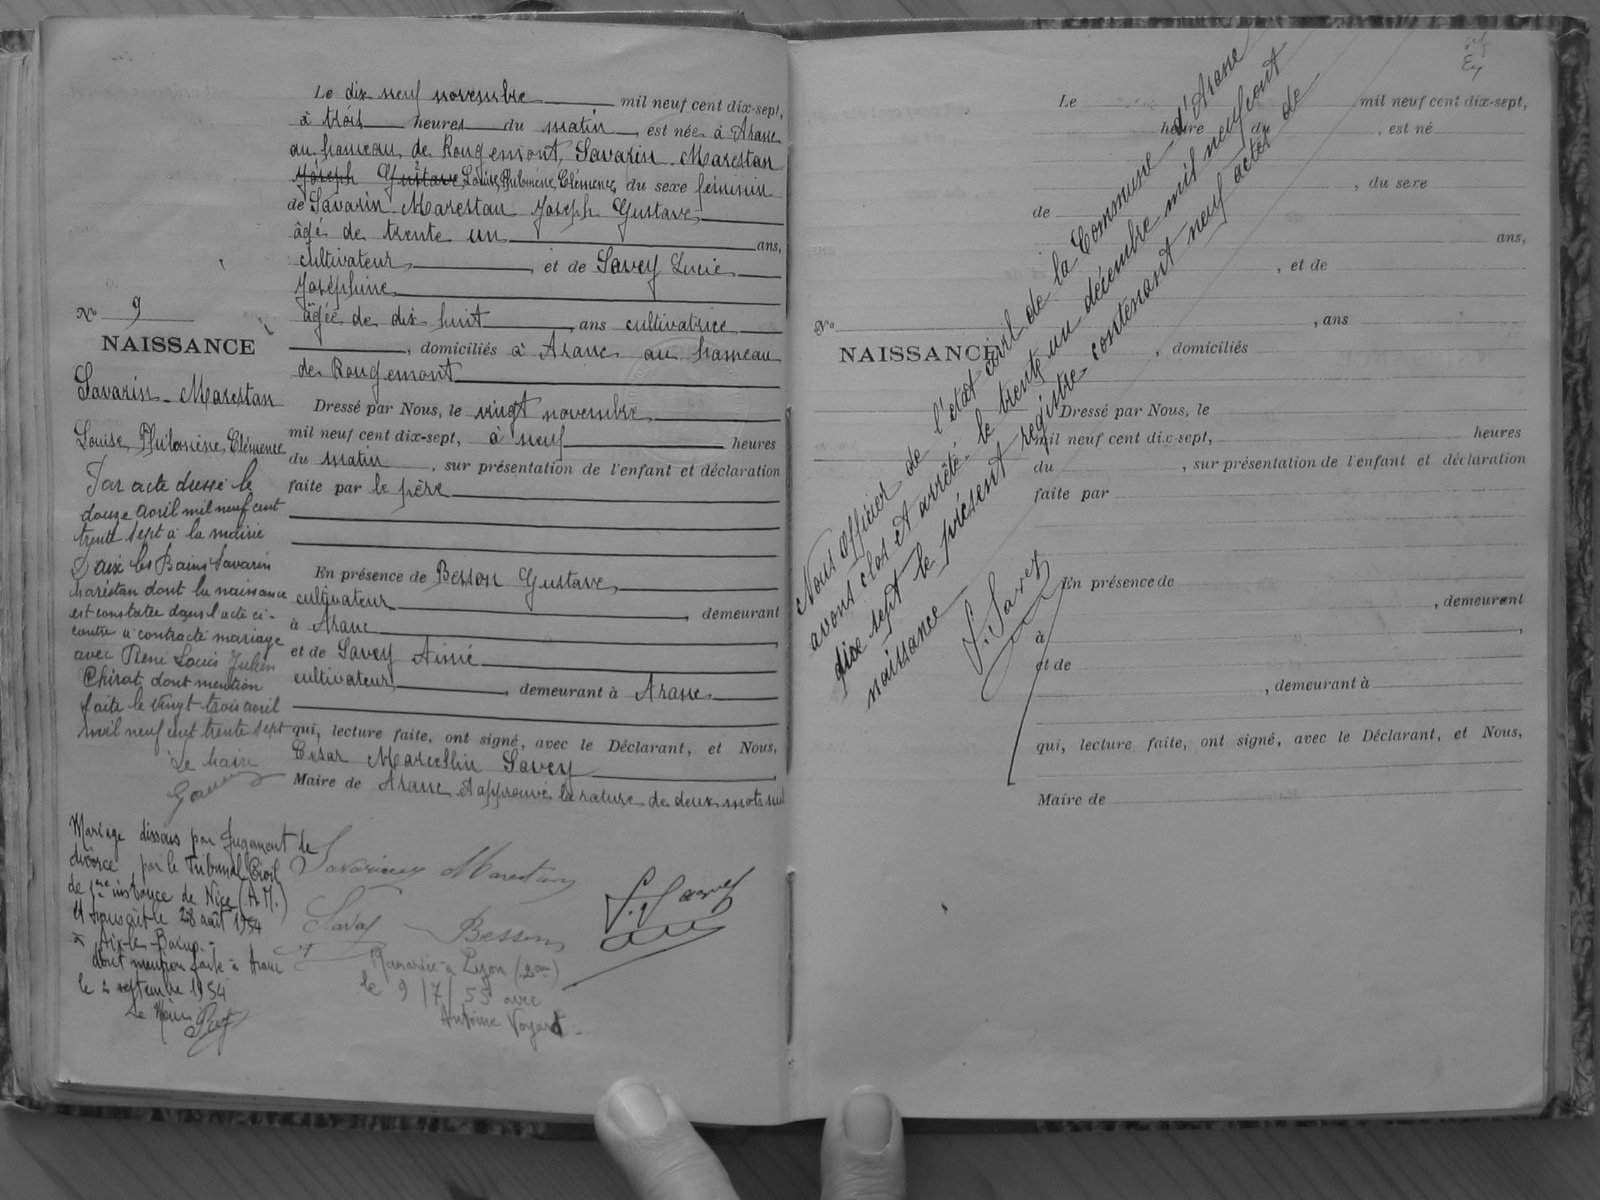 Le dix neuf novembre mil neuf cent dix-sept,
à trois heures du matin, est née à Aranc
au hameau de Rougemont, Savarin-Marestan
Joseph Gustave Louise, Philomène, Clémence, du sexe féminin
de Savarin-Marestan Joseph Gustave,
âgé de trente un ans,
cultivateur, et de Savey Lucie
Joséphine
âgée de dix huit ans cultivatrice
, domiciliés à Aranc au hameau
de Rougemont
Dressé par Nous, le vingt novembre
mil neuf cent dix-sept, à neuf heures
du matin, sur présentation de l'enfant et déclaration
faite par le père
En présence de Besson Gustave,
cultivateur, demeurant
à Aranc
et de Savey Aimé
cultivateur, demeurant à Aranc
qui, lecture faite, ont signé, avec le Déclarant, et Nous,
César Marcellin Savey
Maire de Aranc. Approuvé la rature de deux mots nuls
Savarin Marestan
Savey Besson
Remariée à Lyon (2e)
le 9/7/55 avec
Antoine Voyard.
No 9
NAISSANCE
Savarin-Marestan
Louise, Philomène, Clémence
Par acte dressé le
douze avril mil neuf cent
trente sept à la mairie
d'aix les Bains Savarin
Marestan dont la naissance
est constatée dans l'acte ci-
contre a contracté mariage
avec René Louis Julien
Chirat dont mention
faite le vingt trois avril
mil neuf cent trente sept
Le Maire
Mariage dissous par jugement de
divorce par le Tribunal Civil
de 1re instance de Nice (A.M.)
et transcrit le 28 août 1954
à Aix-les-Bains.
dont mention faite à Aranc
le 2 septembre 1954
Le Maire
Le mil neuf cent dix-sept,
heure du , est né
, du sexe
de
ans,
, et de
No
, ans
NAISSANCE
, domiciliés
Dressé par Nous, le
mil neuf cent dix-sept, heures
du , sur présentation de l'enfant et déclaration
faite par
En présence de
, demeurant
à
et de
, demeurant à
qui, lecture faite, ont signé, avec le Déclarant, et Nous,
Maire de
Nous Officier de l'état civil de la Commune d'Aranc
avons clos et arrêté le trente un décembre mil neuf cent
dix sept le présent registre contenant neuf actes de
naissance